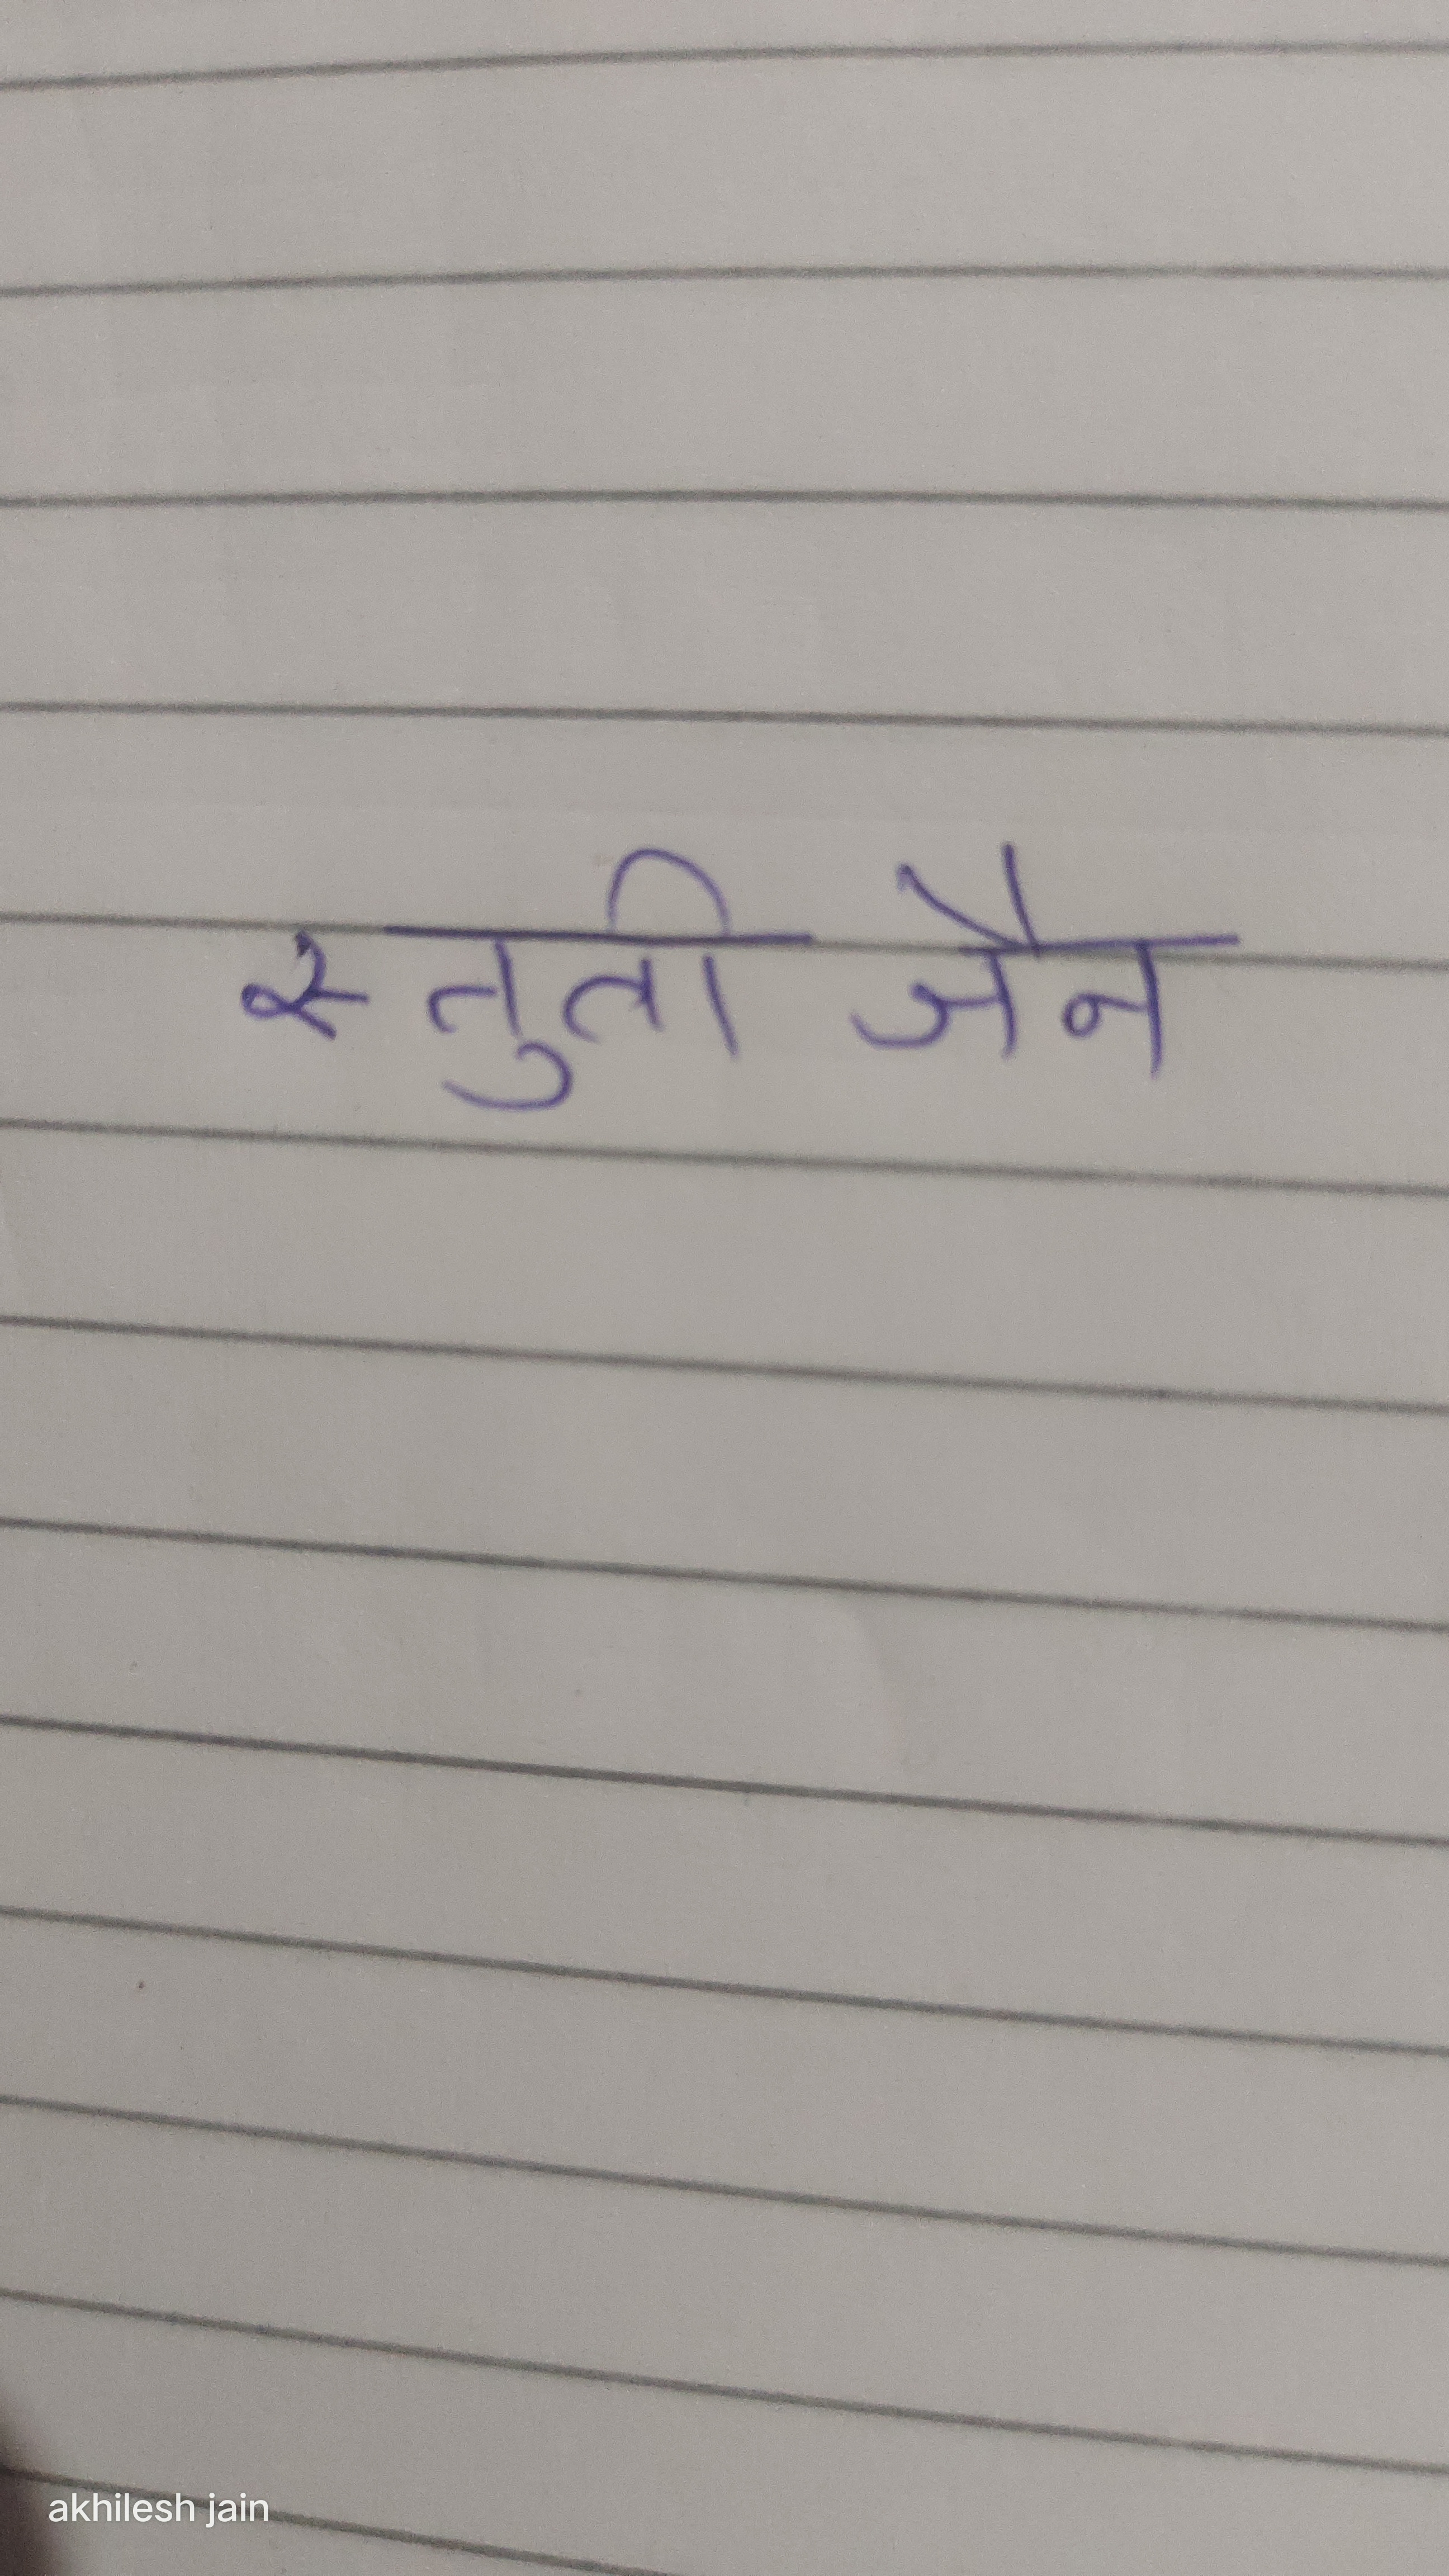 स्तुती जैन
akhilesh jain